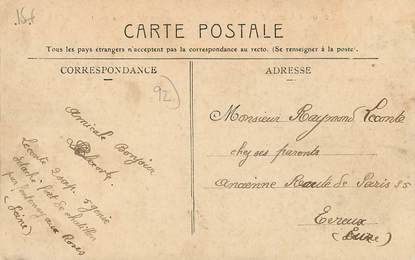 CARTE POSTALE
Tous les pays étrangers n'acceptent pas la correspondance au recto. (Se renseigner à la poste.)
CORRESPONDANCE
ADRESSE
92
Amicale Bonjour
Lecomte
Lecomte 2 sap. 5 génie
fort de chatillon
par fontenay aux Roses
(Seine)
Monsieur Raymond Lecomte
chez ses parents
ancienne Route de Paris 35
Evreux
(Eure)